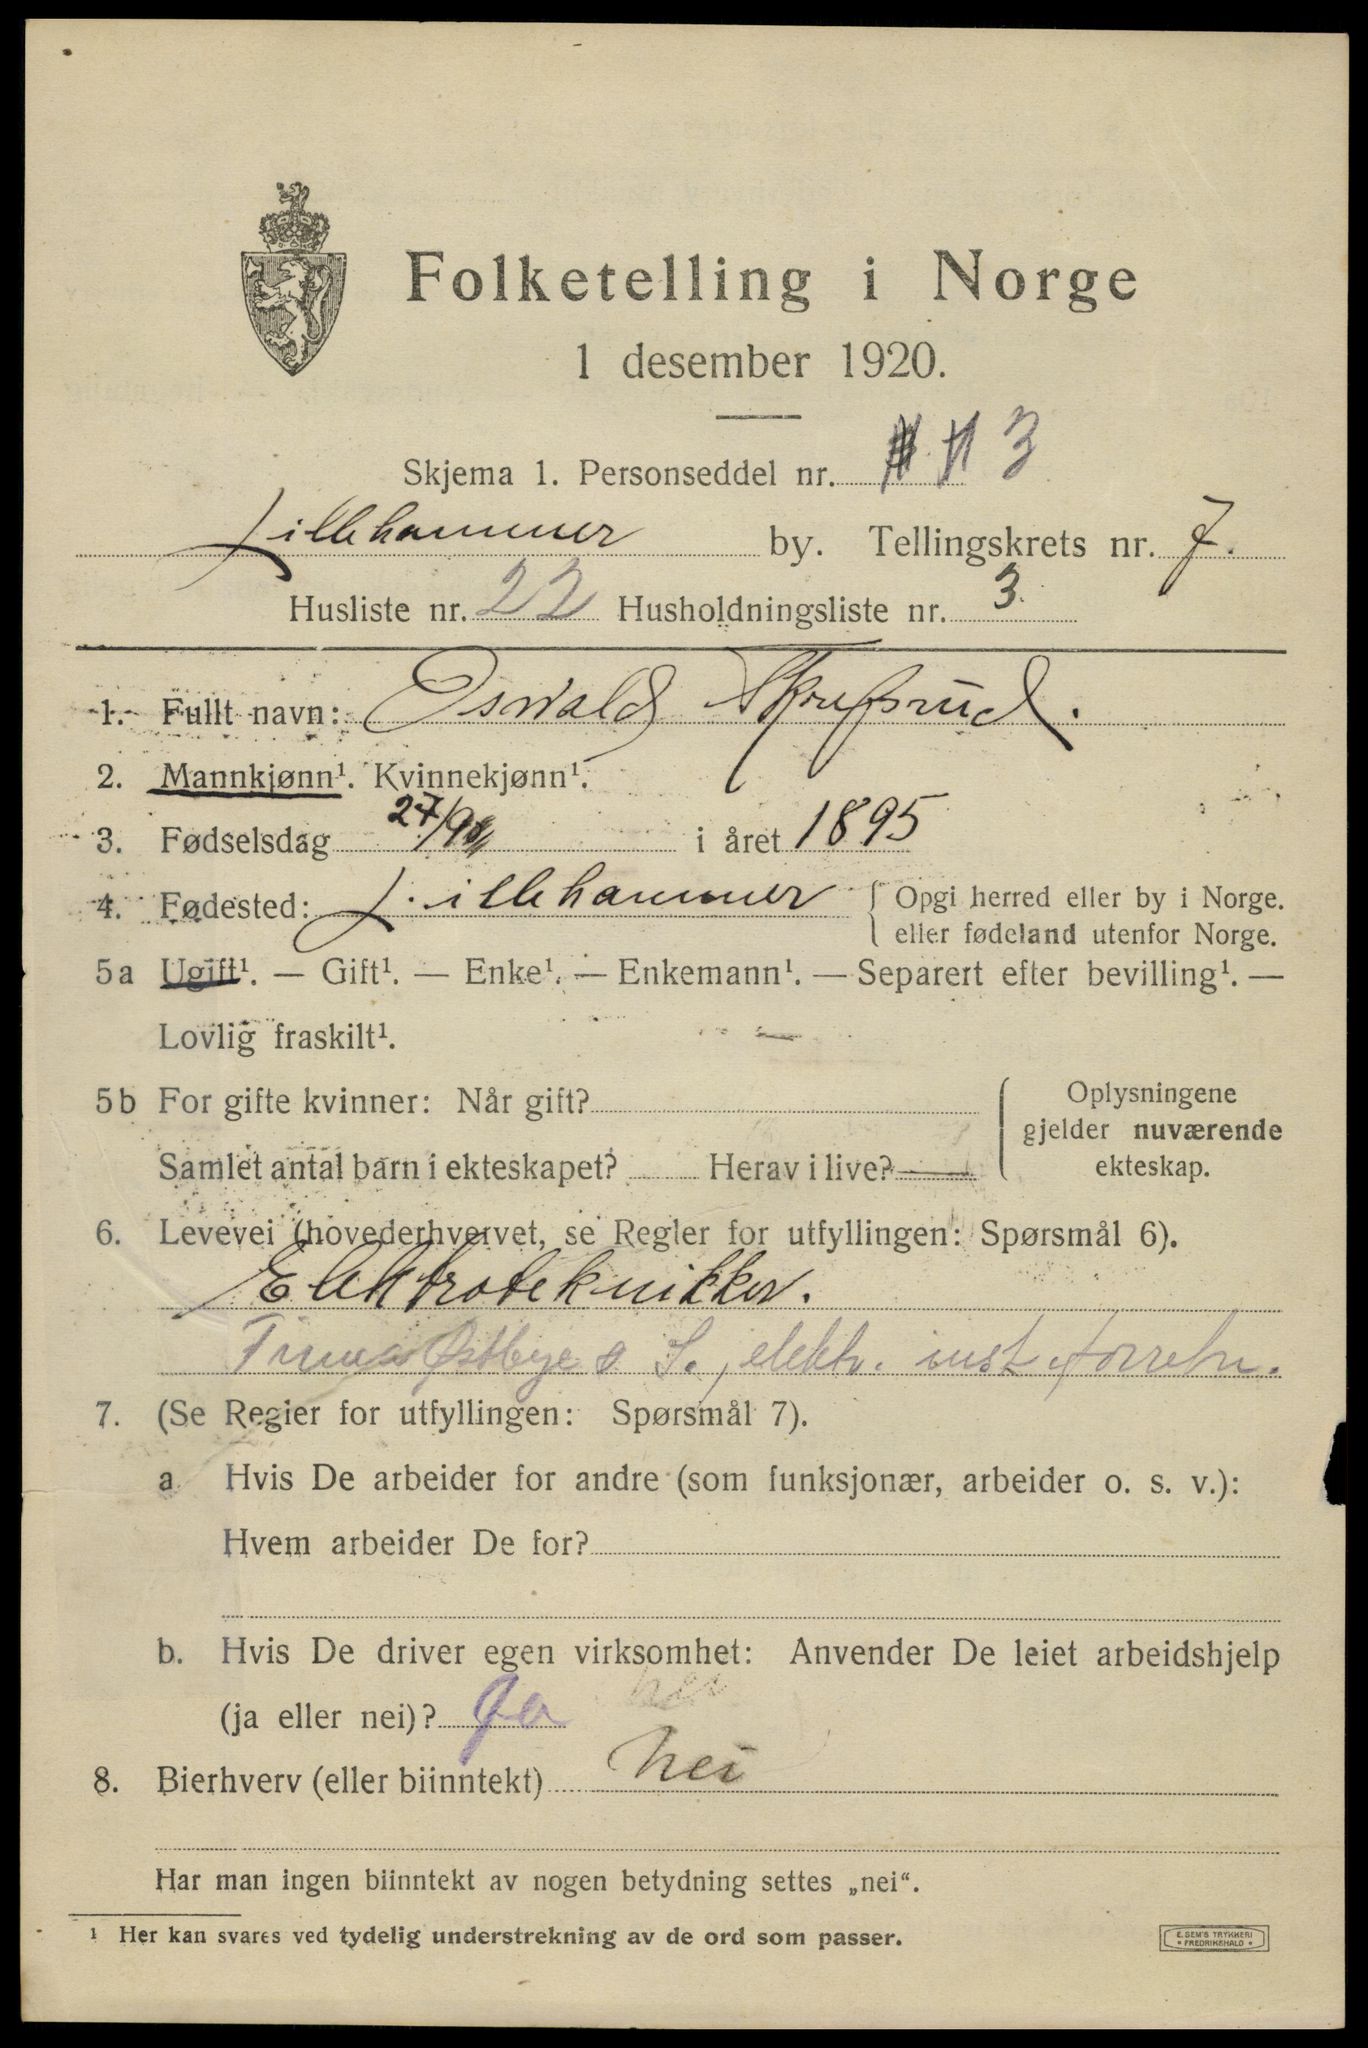 Folketelling i Norge
1 desember 1920.
Skjema 1. Personseddel nr. 3
Lillehammer by. Tellingskrets nr. 7.
Husliste nr. 22 Husholdningsliste nr. 3.
1. Fullt navn: Oswald Skrefsrud.
2. Mannkjønn¹. Kvinnekjønn¹.
3. Fødselsdag 27/9 i året 1895
4. Fødested: Lillehammer { Opgi herred eller by i Norge.
eller fødeland utenfor Norge.
5a Ugift¹. — Gift¹. — Enke¹. — Enkemann¹. — Separert efter bevilling¹. —
Lovlig fraskilt¹.
5b For gifte kvinner: Når gift?
Samlet antal barn i ekteskapet? Herav i live?
Oplysningene
gjelder nuværende
ekteskap.
6. Levevei (hovederhvervet, se Regler for utfyllingen: Spørsmål 6).
Elektroteknikker.
Firma Østbye & S., elektr. inst forretn.
7. (Se Regler for utfyllingen: Spørsmål 7).
a Hvis De arbeider for andre (som funksjonær, arbeider o. s. v.):
Hvem arbeider De for?
b. Hvis De driver egen virksomhet: Anvender De leiet arbeidshjelp
(ja eller nei)? Ja nei
8. Bierhverv (eller biinntekt) Nei
Har man ingen biinntekt av nogen betydning settes „nei".
¹ Her kan svares ved tydelig understrekning av de ord som passer.
E. SEM'S TRYKKERI
• FREDRIKSHALD •